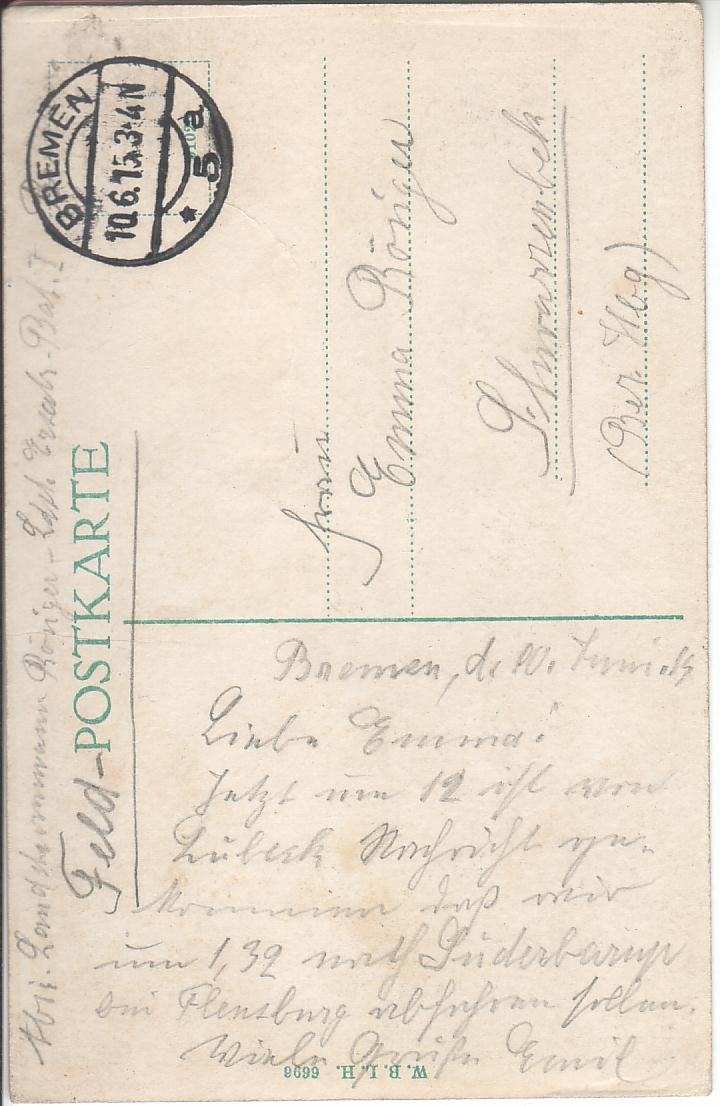 Feld-POSTKARTE
Abs. Landsturmmann Röniger - Ldst. Ersatz-Bat. I
BREMEN
10.6.15.3-4N
* 5 a
Frau
Emma Röniger
Schwarzenbek
(Bez. Hbg)
Bremen, d. 10. Juni 15
Liebe Emma!
Jetzt um 12 ist von
Lübeck Nachricht ge-
kommen daß wir
um 1,39 nach Süderbarup
bei Flensburg abfahren sollen.
Viele Grüße Emil
W.B.L.H. 6696